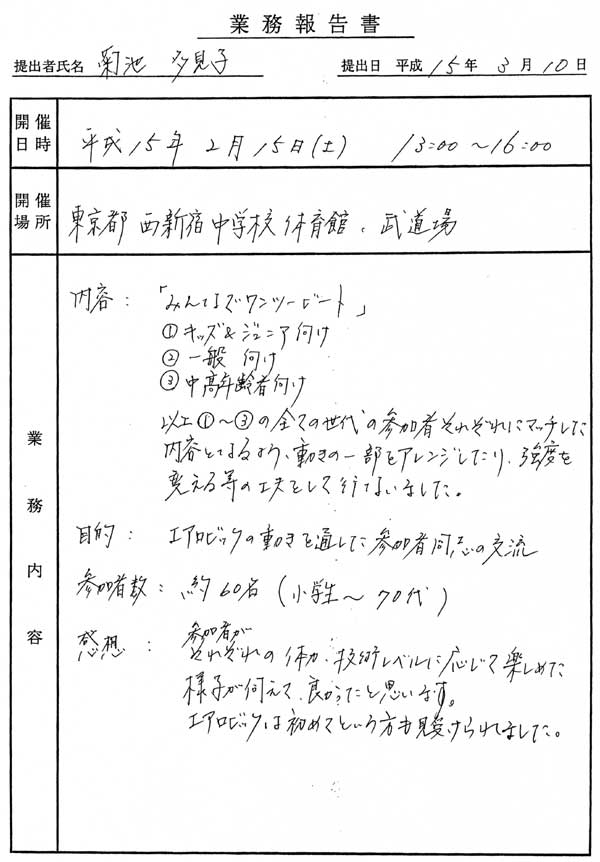 業務報告書
提出者氏名 菊池 多見子 提出日 平成 15年 3月 10日
開催日時 平成 15年 2月 15日(土) 13:00 ~ 16:00
開催場所 東京都 西新宿中学校 体育館、武道場
業務内容
内容: 「みんなでワンツービート」
① キッズ&ジュニア向け
② 一般 向け
③ 中高年齢者向け
以上①~③の全ての世代の参加者それぞれにマッチした
内容となるよう、動きの一部をアレンジしたり、強度を
変える等の工夫をして行ないました。
目的: エアロビックの動きを通した参加者同志の交流
参加者数: 約60名 (小学生~70代)
感想: 参加者が
それぞれの体力、技術レベルに応じて楽しめた
様子が伺えて、良かったと思います。
エアロビックは初めてという方も見受けられました。